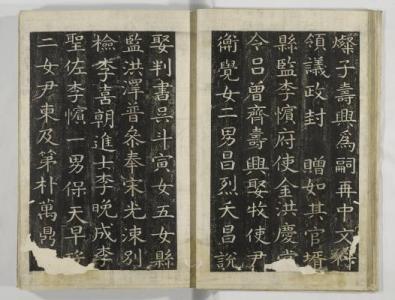 燦子壽興爲嗣再中文科
領議政封　贈如其官壻
縣監李懬府使金洪慶
令呂曾齊壽興娶牧使尹
衡覺女二男昌烈夭昌說
娶判書吳斗寅女五女縣
監洪澤普參奉宋光涑別
檢李喜朝進士李晚成李
聖佐李懬一男保天早
二女尹東及第朴萬鼎